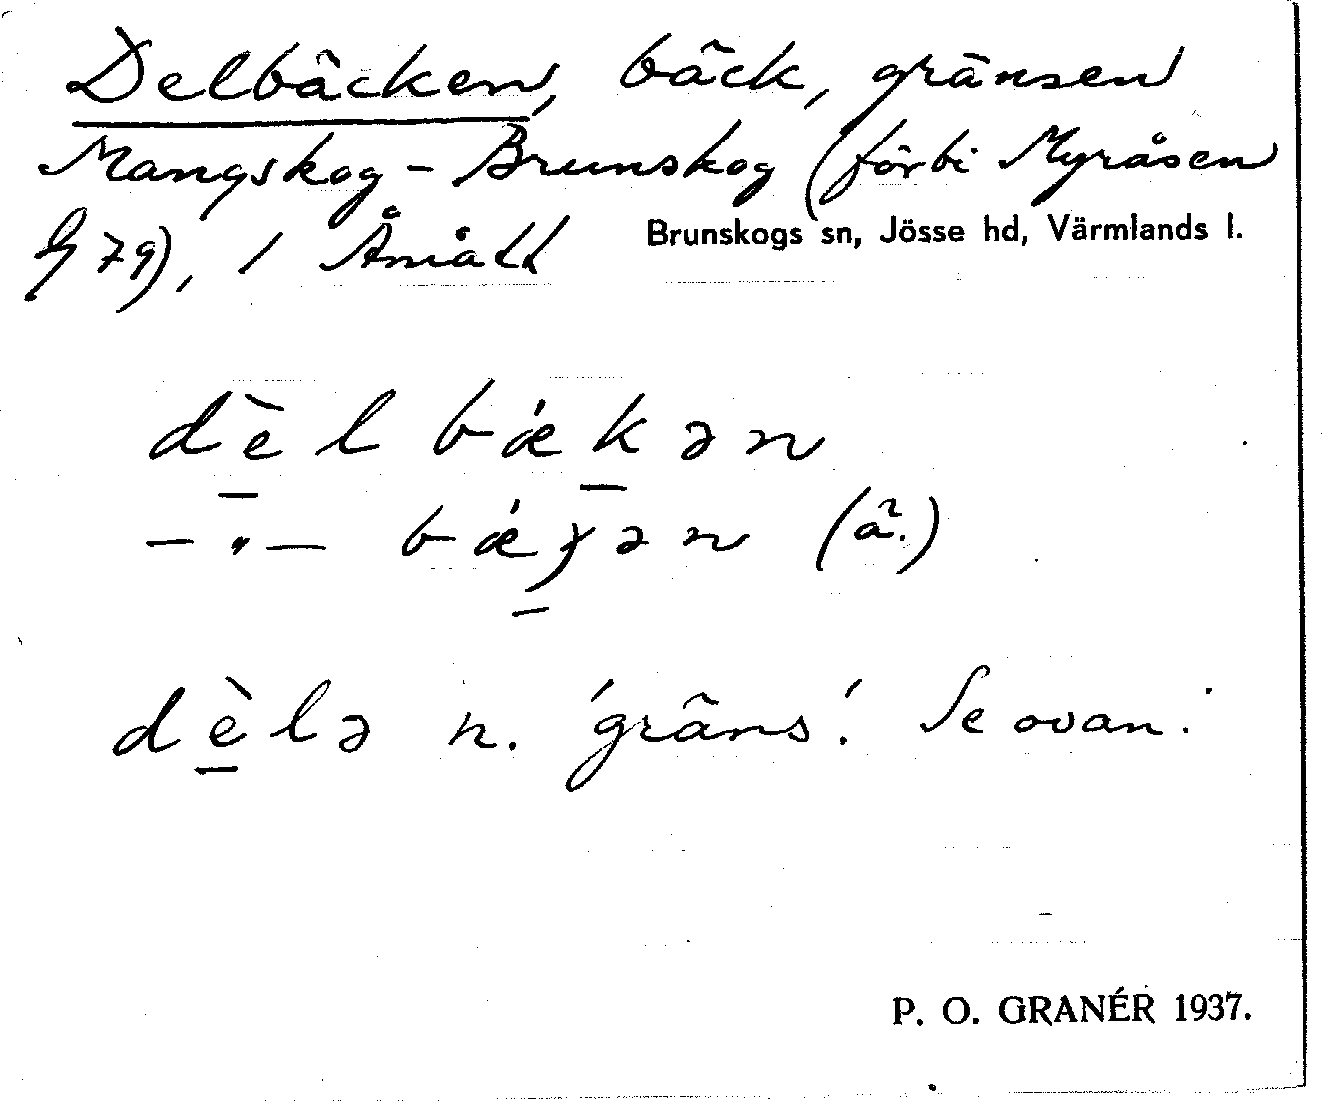 Delbäcken, bäck, gränsen
Mangskog - Brunskog (förbi Myråsen
79), i Åmått
Brunskogs sn, Jösse hd, Värmlands l.
dèl bǽkən
— „ — bǽɟən (ä.)
dèlə n. 'gräns'. Se ovan.
P. O. GRANÉR 1937.